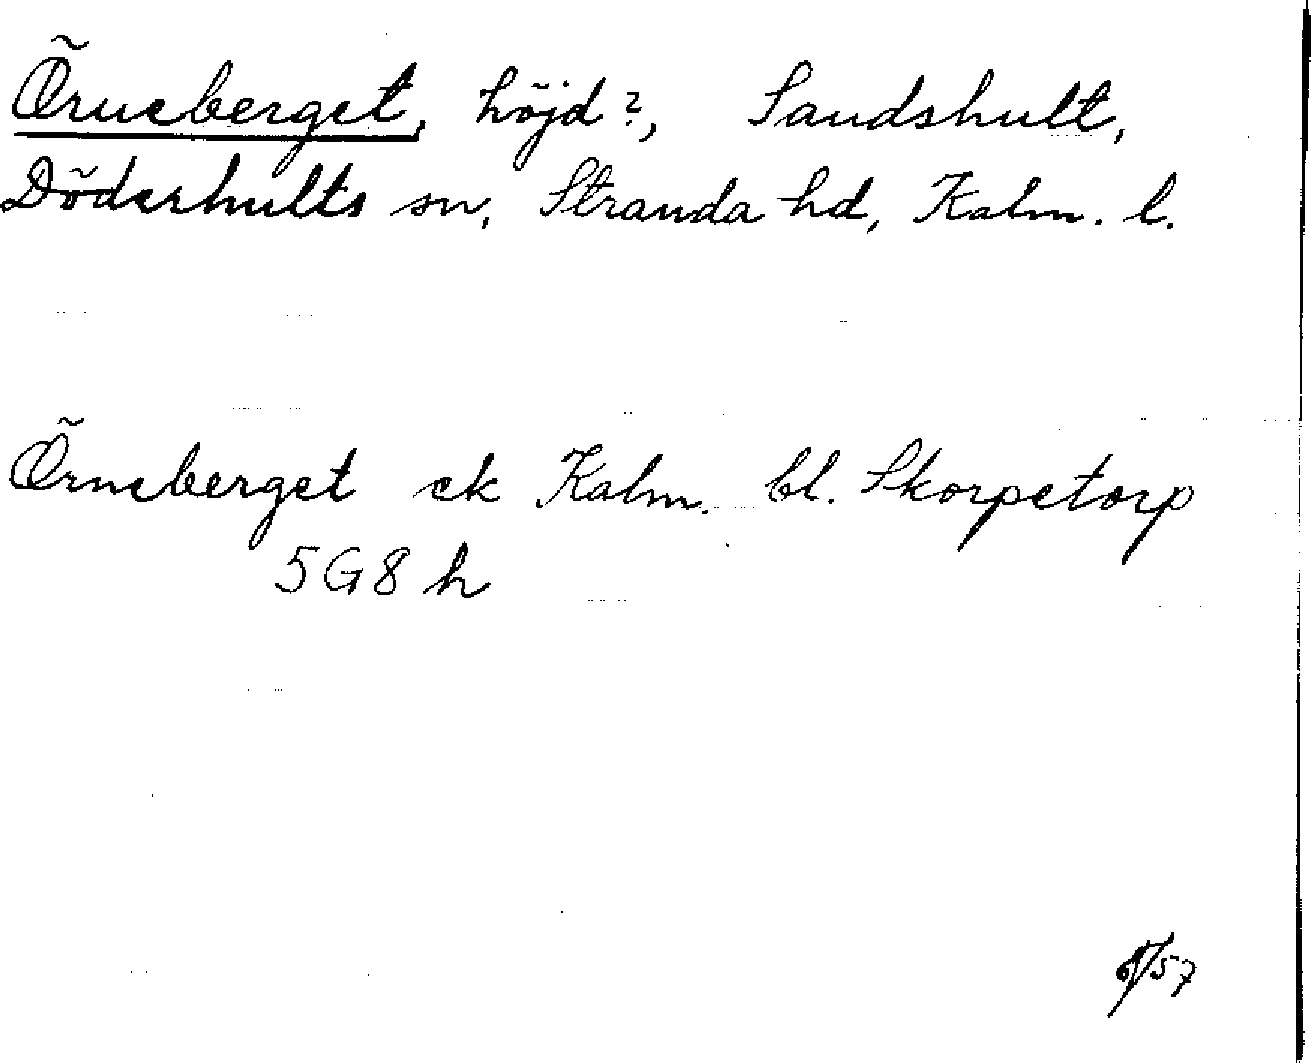 Örneberget, höjd?, Sandshult,
Döderhults sn, Stranda hd, Kalm. l.
Örneberget ek Kalm. bl. Skorpetorp
5G8h
/57